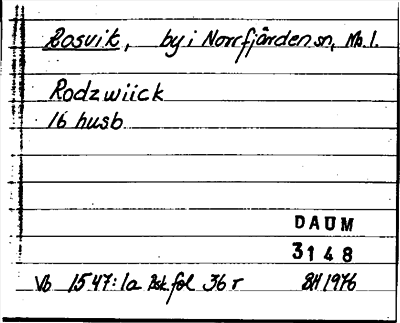 Rosvik, by i Norrfjärden sn, Nb. l.
Rodzwiick
16 husb
DAUM
3148
Vb 1547:1a Bsk fol 36 r BH 1976